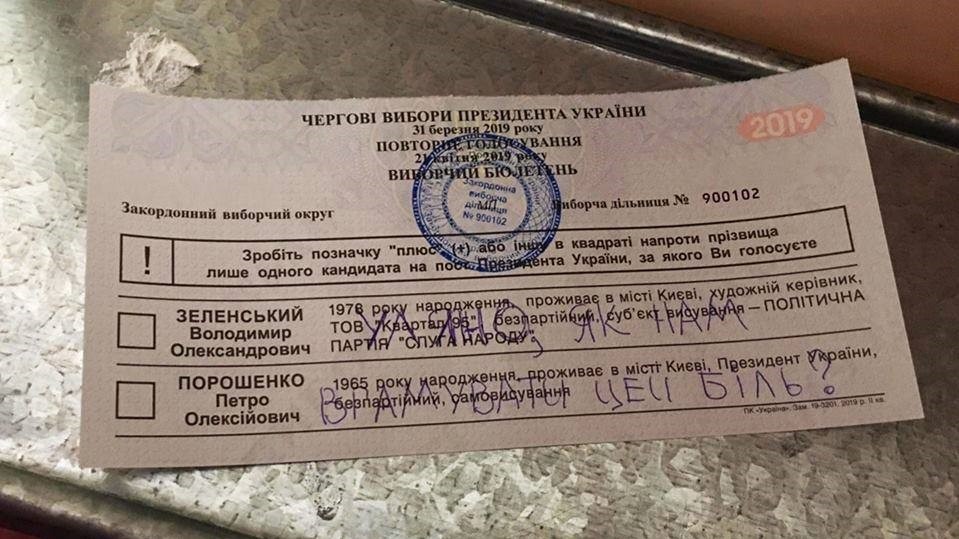 ЧЕРГОВІ ВИБОРИ ПРЕЗИДЕНТА УКРАЇНИ
31 березня 2019 року
2019
ПОВТОРНЕ ГОЛОСУВАННЯ
21 квітня 2019 року
ВИБОРЧИЙ БЮЛЕТЕНЬ
Закордонна
виборча
дільниця
№ 900102
МП
Закордонний виборчий округ
Виборча дільниця № 900102
! Зробіть позначку "плюс" (+) або іншу в квадраті напроти прізвища
лише одного кандидата на пост Президента України, за якого Ви голосуєте
ЗЕЛЕНСЬКИЙ
Володимир
Олександрович
1978 року народження, проживає в місті Києві, художній керівник,
ТОВ "Квартал 95", безпартійний, суб'єкт висування – ПОЛІТИЧНА
ПАРТІЯ "СЛУГА НАРОДУ"
УЛЯНО, ЯК НАМ
ПОРОШЕНКО
Петро
Олексійович
1965 року народження, проживає в місті Києві, Президент України,
безпартійний, самовисування
ВГАМУВАТИ ЦЕЙ БІЛЬ?
ПК «Україна». Зам. 19-3201. 2019 р. ІІ кв.